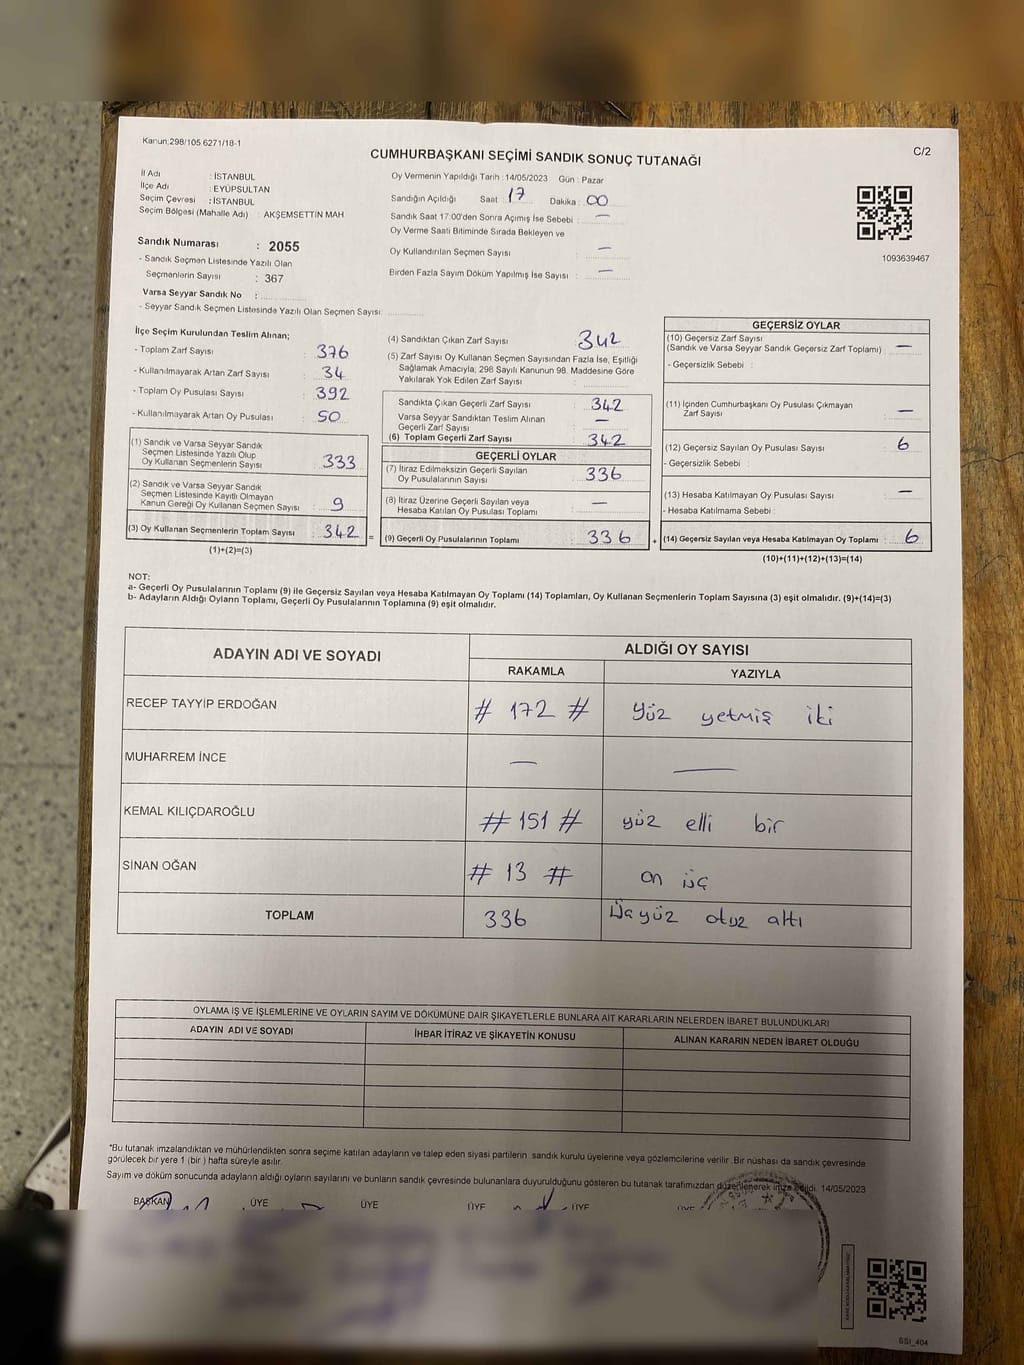 Kanun;298/105 6271/18-1
C/2
CUMHURBAŞKANI SEÇİMİ SANDIK SONUÇ TUTANAĞI
İl Adı : İSTANBUL
İlçe Adı : EYÜPSULTAN
Seçim Çevresi : İSTANBUL
Seçim Bölgesi (Mahalle Adı) : AKŞEMSETTİN MAH
Sandık Numarası : 2055
- Sandık Seçmen Listesinde Yazılı Olan
Seçmenlerin Sayısı : 367
Varsa Seyyar Sandık No :
- Seyyar Sandık Seçmen Listesinde Yazılı Olan Seçmen Sayısı:
Oy Vermenin Yapıldığı Tarih : 14/05/2023 Gün : Pazar
Sandığın Açıldığı Saat : 17 Dakika : 00
Sandık Saat 17:00'den Sonra Açılmış İse Sebebi : —
Oy Verme Saati Bitiminde Sırada Bekleyen ve
Oy Kullandırılan Seçmen Sayısı : —
Birden Fazla Sayım Döküm Yapılmış İse Sayısı : —
1093639467
İlçe Seçim Kurulundan Teslim Alınan;
- Toplam Zarf Sayısı : 376
- Kullanılmayarak Artan Zarf Sayısı : 34
- Toplam Oy Pusulası Sayısı : 392
- Kullanılmayarak Artan Oy Pusulası : 50
(1) Sandık ve Varsa Seyyar Sandık
Seçmen Listesinde Yazılı Olup
Oy Kullanan Seçmenlerin Sayısı : 333
(2) Sandık ve Varsa Seyyar Sandık
Seçmen Listesinde Kayıtlı Olmayan
Kanun Gereği Oy Kullanan Seçmen Sayısı : 9
(3) Oy Kullanan Seçmenlerin Toplam Sayısı : 342 =
(1)+(2)=(3)
(4) Sandıktan Çıkan Zarf Sayısı : 342
(5) Zarf Sayısı Oy Kullanan Seçmen Sayısından Fazla İse, Eşitliği
Sağlamak Amacıyla; 298 Sayılı Kanunun 98. Maddesine Göre
Yakılarak Yok Edilen Zarf Sayısı :
Sandıkta Çıkan Geçerli Zarf Sayısı : 342
Varsa Seyyar Sandıktan Teslim Alınan
Geçerli Zarf Sayısı : —
(6) Toplam Geçerli Zarf Sayısı : 342
GEÇERLİ OYLAR
(7) İtiraz Edilmeksizin Geçerli Sayılan
Oy Pusulalarının Sayısı : 336
(8) İtiraz Üzerine Geçerli Sayılan veya
Hesaba Katılan Oy Pusulaları Toplamı : —
(9) Geçerli Oy Pusulalarının Toplamı : 336 +
GEÇERSİZ OYLAR
(10) Geçersiz Zarf Sayısı
(Sandık ve Varsa Seyyar Sandık Geçersiz Zarf Toplamı) : —
- Geçersizlik Sebebi :
(11) İçinden Cumhurbaşkanı Oy Pusulası Çıkmayan
Zarf Sayısı : —
(12) Geçersiz Sayılan Oy Pusulası Sayısı : 6
- Geçersizlik Sebebi :
(13) Hesaba Katılmayan Oy Pusulası Sayısı : —
- Hesaba Katılmama Sebebi :
(14) Geçersiz Sayılan veya Hesaba Katılmayan Oy Toplamı : 6
(10)+(11)+(12)+(13)=(14)
NOT:
a- Geçerli Oy Pusulalarının Toplamı (9) ile Geçersiz Sayılan veya Hesaba Katılmayan Oy Toplamı (14) Toplamları, Oy Kullanan Seçmenlerin Toplam Sayısına (3) eşit olmalıdır. (9)+(14)=(3)
b- Adayların Aldığı Oyların Toplamı, Geçerli Oy Pusulalarının Toplamına (9) eşit olmalıdır.
ADAYIN ADI VE SOYADI
ALDIĞI OY SAYISI
RAKAMLA YAZIYLA
RECEP TAYYİP ERDOĞAN # 172 # yüz yetmiş iki
MUHARREM İNCE — —
KEMAL KILIÇDAROĞLU # 151 # yüz elli bir
SİNAN OĞAN # 13 # on üç
TOPLAM 336 üç yüz otuz altı
OYLAMA İŞ VE İŞLEMLERİNE VE OYLARIN SAYIM VE DÖKÜMÜNE DAİR ŞİKAYETLERLE BUNLARA AİT KARARLARIN NELERDEN İBARET BULUNDUKLARI
ADAYIN ADI VE SOYADI İHBAR İTİRAZ VE ŞİKAYETİN KONUSU ALINAN KARARIN NEDEN İBARET OLDUĞU
*Bu tutanak imzalandıktan ve mühürlendikten sonra seçime katılan adayların ve talep eden siyasi partilerin sandık kurulu üyelerine veya gözlemcilerine verilir. Bir nüshası da sandık çevresinde
görülecek bir yere 1 (bir) hafta süreyle asılır.
Sayım ve döküm sonucunda adayların aldığı oyların sayılarını ve bunların sandık çevresinde bulunanlara duyurulduğunu gösteren bu tutanak tarafımızdan düzenlenerek imza edildi. 14/05/2023
BAŞKAN ÜYE ÜYE ÜYE ÜYE ÜYE